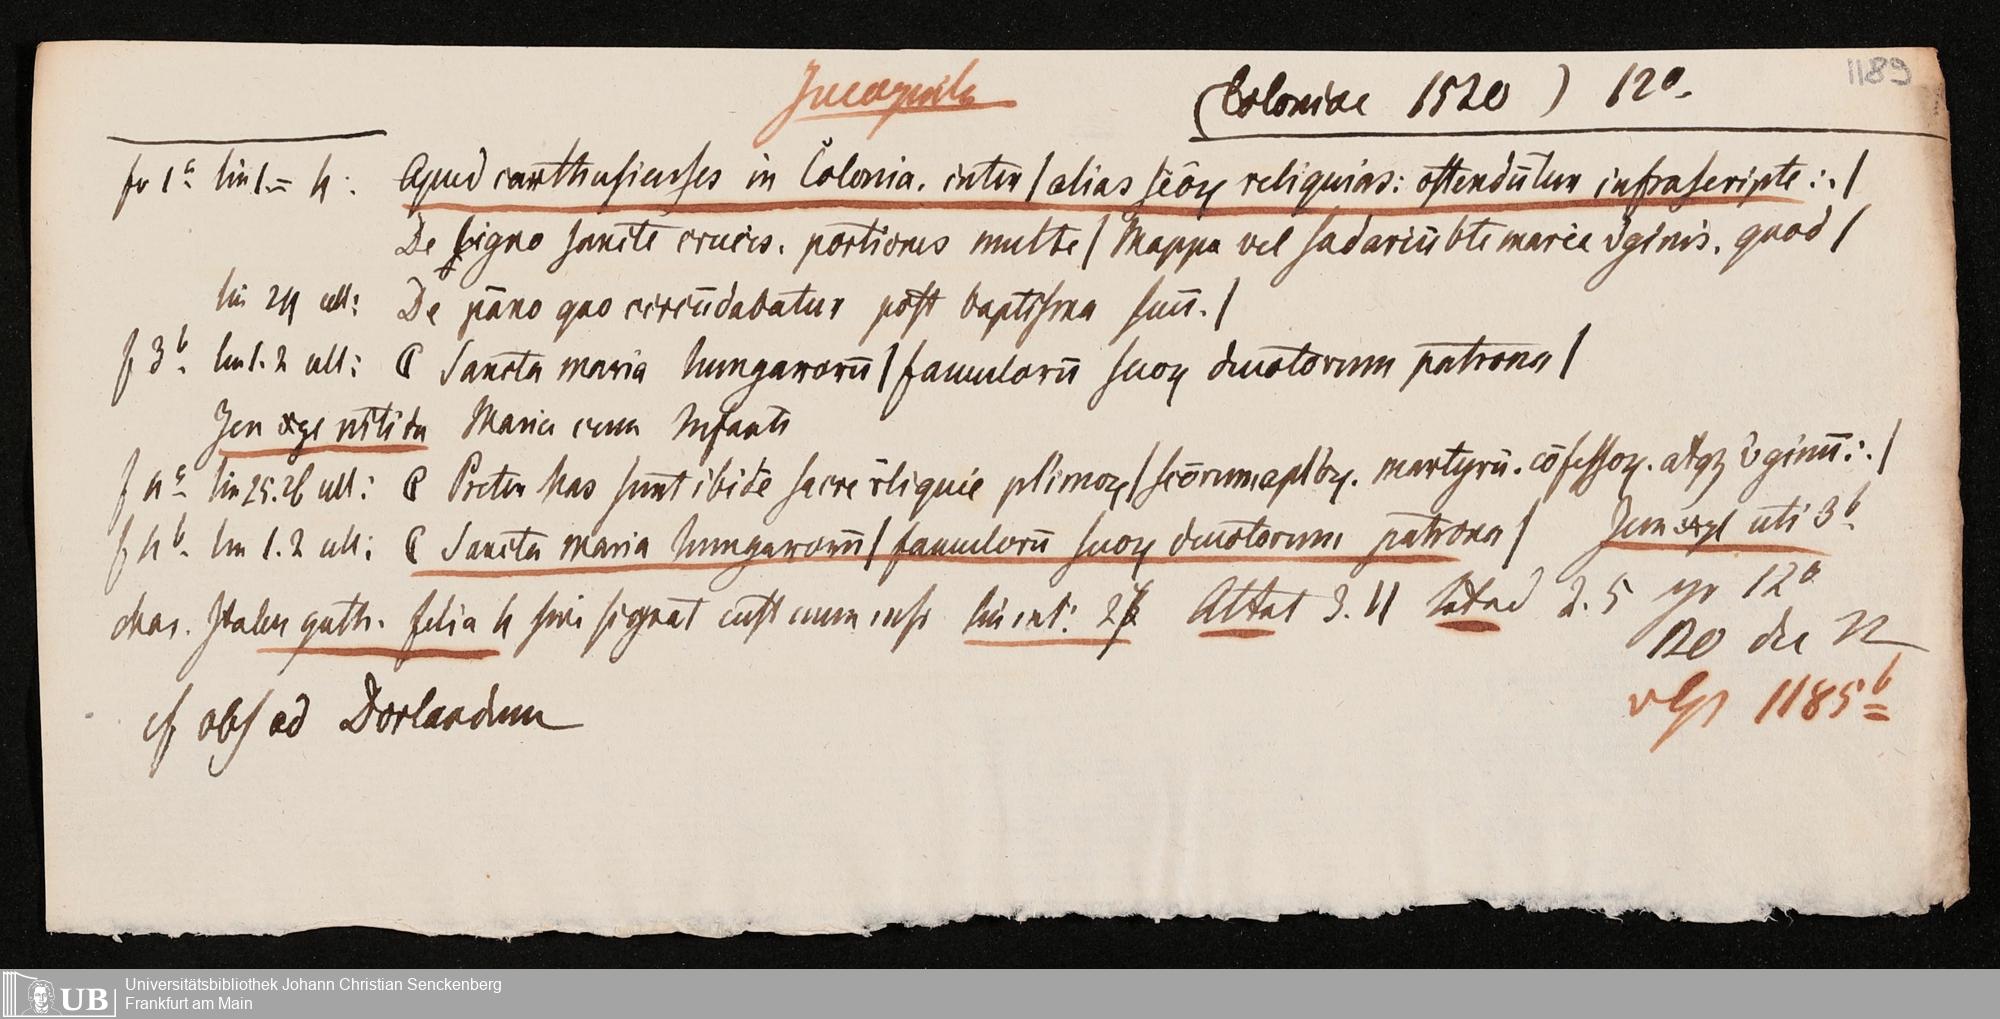 1189
(Coloniae 1520) 12°.
f 1ᵃ lin 1–4. Apud carthusienses in Colonia. inter / alias scōꝝ reliquias: ostendūtur infrascripte:. /
De ligno sancte crucis. portiones multe / Mappa vel sudariū bte marie v̄ginis. quod /
lin 24 ult: De pāno quo circūdabatur post baptisma suū. /
f 3ᵇ. lin 1.2 ult: Sancta maria hungarorū / famulorū suoꝝ deuotorum patrona /
Icon xyl nitida Maria cum Infante
f 4ᵃ lin 25.26 ult: Preter has sunt ibidē sacre reliquie pl'imoꝝ / scōrum apl'oꝝ. martyrū. cōfessoꝝ. atqꝫ v̄ginū:. /
f 4ᵇ. lin 1.2 ult: Sancta maria hungarorū / famulorū suoꝝ deuotorum patrona / Icon xyl uti 3ᵇ.
char. goth. folia 4 sine signat cust num lin int: 2
cf obs ad Dorlandum
1185ᵇ
UB
Universitätsbibliothek Johann Christian Senckenberg
Frankfurt am Main